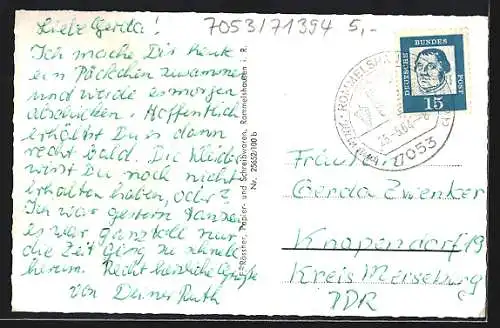 Liebe Gerda!
7053/71394 5,-
Ich mache Dir heute
ein Päckchen zusammen
und werde es morgen
abschicken. Hoffentlich
erhältst Du es dann
recht bald. Die Kleider
wirst Du noch nicht
erhalten haben, oder?
Ich war gestern tanzen
es war ganz toll nur
die Zeit ging zu schnell
herum. Recht herzliche Grüße
von Deiner Ruth
F. Rössner, Papier- und Schreibwaren, Rommelshausen i. R.
Nr. 25652/100 b
ROMMELSHAUSEN
7053
DEUTSCHE
BUNDES
POST
15
Fräulein
Gerda Zwenker
Knapendorf 19
Kreis Merseburg
DDR